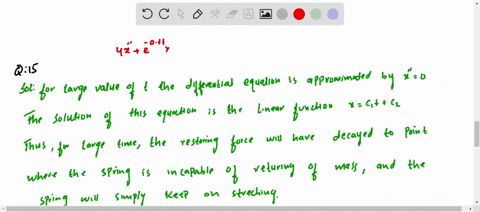 4ẍ + e^-0.1t x
Q:15
Sol: for large value of t the differential equation is approximated by x''=0
The solution of this equation is the linear function x = c₁t + c₂
Thus, for large time, the restoring force will have decayed to point
where the spring is incapable of returing of mass, and the
spring will simply keep on streching.